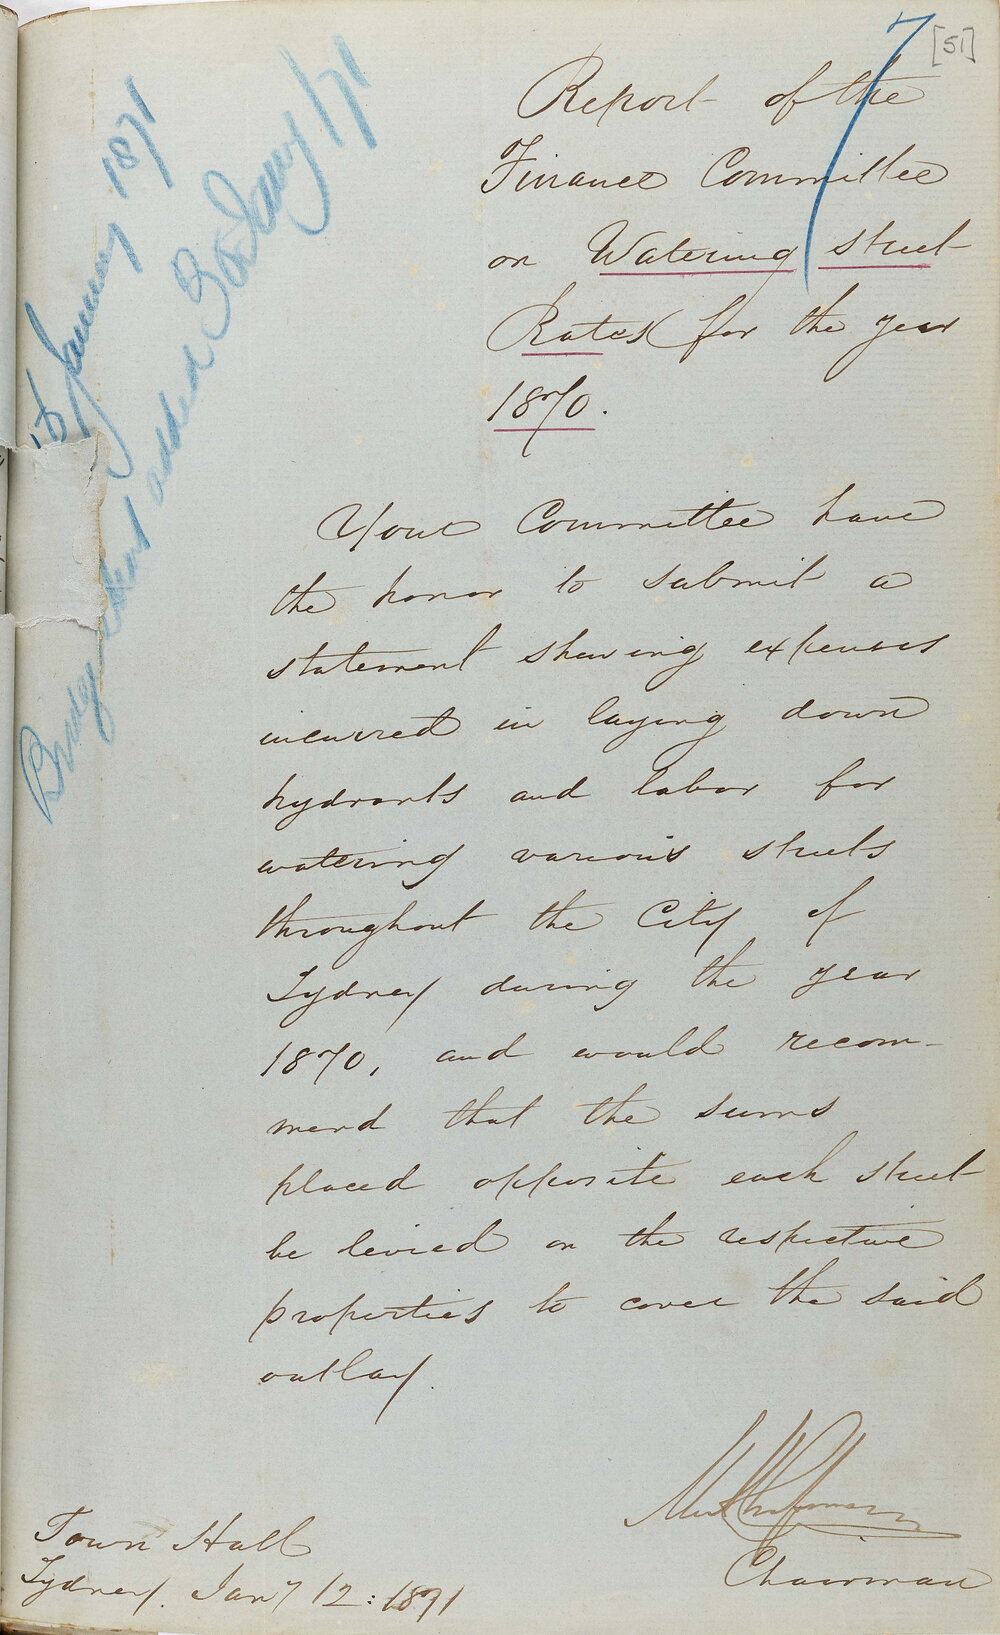 7
[51]
Report of the
Finance Committee
on Watering street
Rates for the year
1870.
January 1871
Bridge added 30 Jany/71
Your Committee have
the honor to submit a
statement shewing expenses
incurred in laying down
hydrants and labor for
watering various streets
throughout the City of
Sydney during the year
1870, and would recom-
mend that the sums
placed opposite each street
be levied on the respective
properties to cover the said
outlay.
Chapman
Chairman
Town Hall
Sydney. Jany 12: 1871